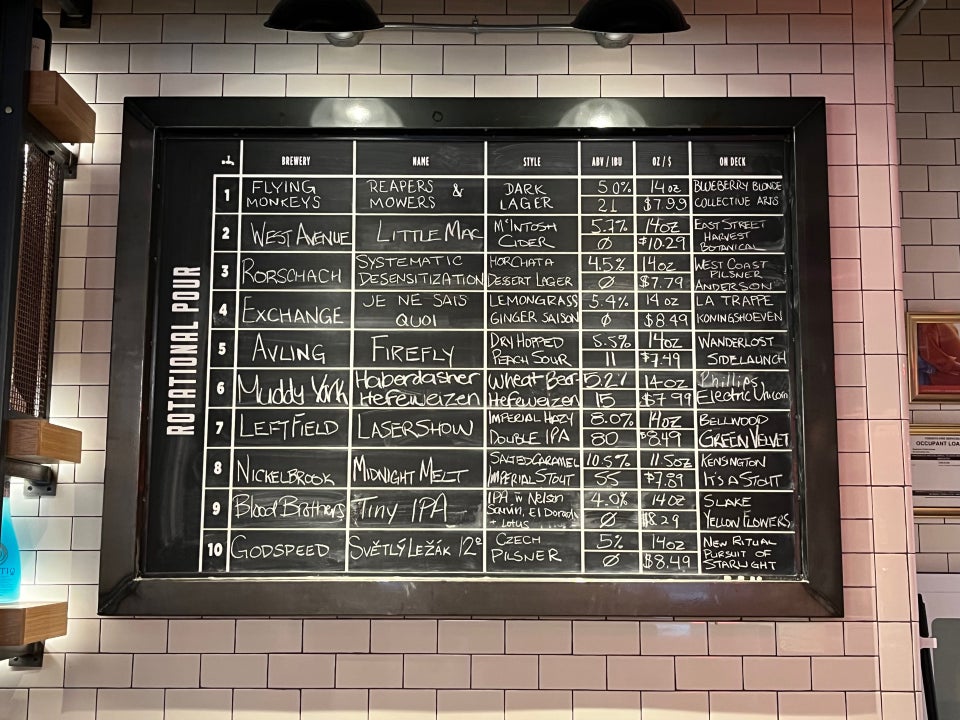 ROTATIONAL POUR
BREWERY NAME STYLE ABV / IBU OZ / $ ON DECK
1 FLYING MONKEYS REAPERS & MOWERS DARK LAGER 5.0% 21 14oz $7.99 BLUEBERRY BLONDE COLLECTIVE ARTS
2 WEST AVENUE LITTLE MAC McINTOSH CIDER 5.7% Ø 14oz $10.29 EAST STREET HARVEST BOTANICAL
3 RORSCHACH SYSTEMATIC DESENSITIZATION HORCHATA DESSERT LAGER 4.5% Ø 14oz $7.79 WEST COAST PILSNER ANDERSON
4 EXCHANGE JE NE SAIS QUOI LEMONGRASS GINGER SAISON 5.4% Ø 14oz $8.49 LA TRAPPE KONINGSHOEVEN
5 AVLING FIREFLY DRY HOPPED PEACH SOUR 5.5% 11 14oz $7.49 WANDERLOST SIDELAUNCH
6 Muddy York Haberdasher Hefeweizen Wheat Beer Hefeweizen 5.2% 15 14oz $7.99 Phillips Electric Unicorn
7 LEFT FIELD LASERSHOW IMPERIAL HAZY DOUBLE IPA 8.0% 80 14oz $8.49 BELLWOOD GREEN VELVET
8 NICKELBROOK MIDNIGHT MELT SALTED CARAMEL IMPERIAL STOUT 10.5% 55 11.5oz $7.89 KENSINGTON IT'S A STOUT
9 Blood Brothers Tiny IPA IPA w Nelson Sauvin, El Dorado + Lotus 4.0% Ø 14oz $8.29 SLAKE YELLOW FLOWERS
10 GODSPEED SVĚTLÝ LEŽÁK 12° CZECH PILSNER 5% Ø 14oz $8.49 NEW RITUAL PURSUIT OF STARLIGHT
OCCUPANT LOA